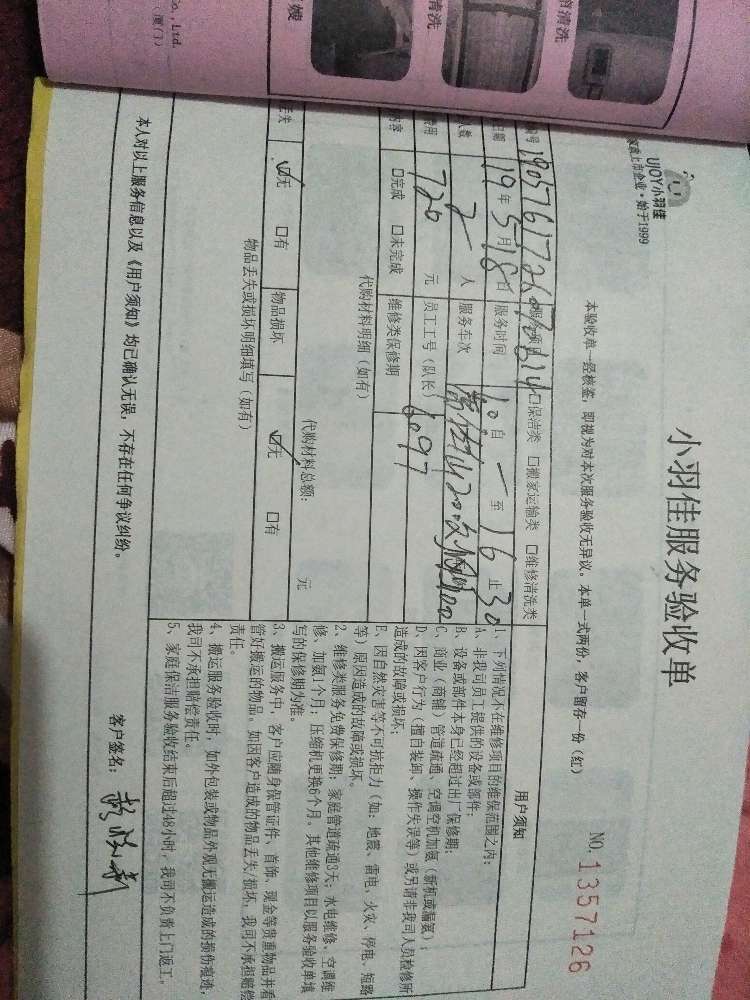 Co., Ltd.
(厦门)
嫂
清洗
清洗
UJOY小羽佳
上市企业·始于1999
小羽佳服务验收单
本验收单一经核签,即视为对本次服务验收无异议。本单一式两份,客户留存一份(红)
NO:1357126
编号
□保洁类 □搬家运输类 □维修清洗类
日期 19年5月18日 服务时间 10自 一 至 16止30
人数 2人 服务车次
费用 720元 员工工号(队长) 6097
内容 □完成 □未完成 维修类保修期
代购材料明细(如有)
代购材料总额: 元
丢失 ☑无 □有 物品损坏 ☑无 □有
物品丢失或损坏明细填写(如有)
用户须知
1、下列情况不在维修项目的维保范围之内:
A、非我司员工提供的设备或部件;
B、设备或部件本身已经超过出厂保修期;
C、商业(商铺)管道疏通、空调空机加氨(新机或漏氨);
D、因客户行为(擅自装卸、操作失误等)或另请非我司人员检修所
造成的故障或损坏;
E、因自然灾害等不可抗拒力(如:地震、雷电、火灾、停电、短路
等)原因造成的故障或损坏。
2、维修类服务免费保修期:家庭管道疏通3天;水电维修、空调维
修、加氨1个月;压缩机更换6个月。其他维修项目以服务验收单填
写的保修期为准。
3、搬运服务中,客户应随身保管证件、首饰、现金等贵重物品并看
管好搬运的物品。如因客户造成的物品丢失/损坏,我司不承担赔偿
责任。
4、搬运服务验收时,如外包装或物品外观无搬运造成的损伤痕迹,
我司不承担赔偿责任。
5、家庭保洁服务验收结束后超过48小时,我司不负责上门返工。
本人对以上服务信息以及《用户须知》均已确认无误,不存在任何争议纠纷。
客户签名: